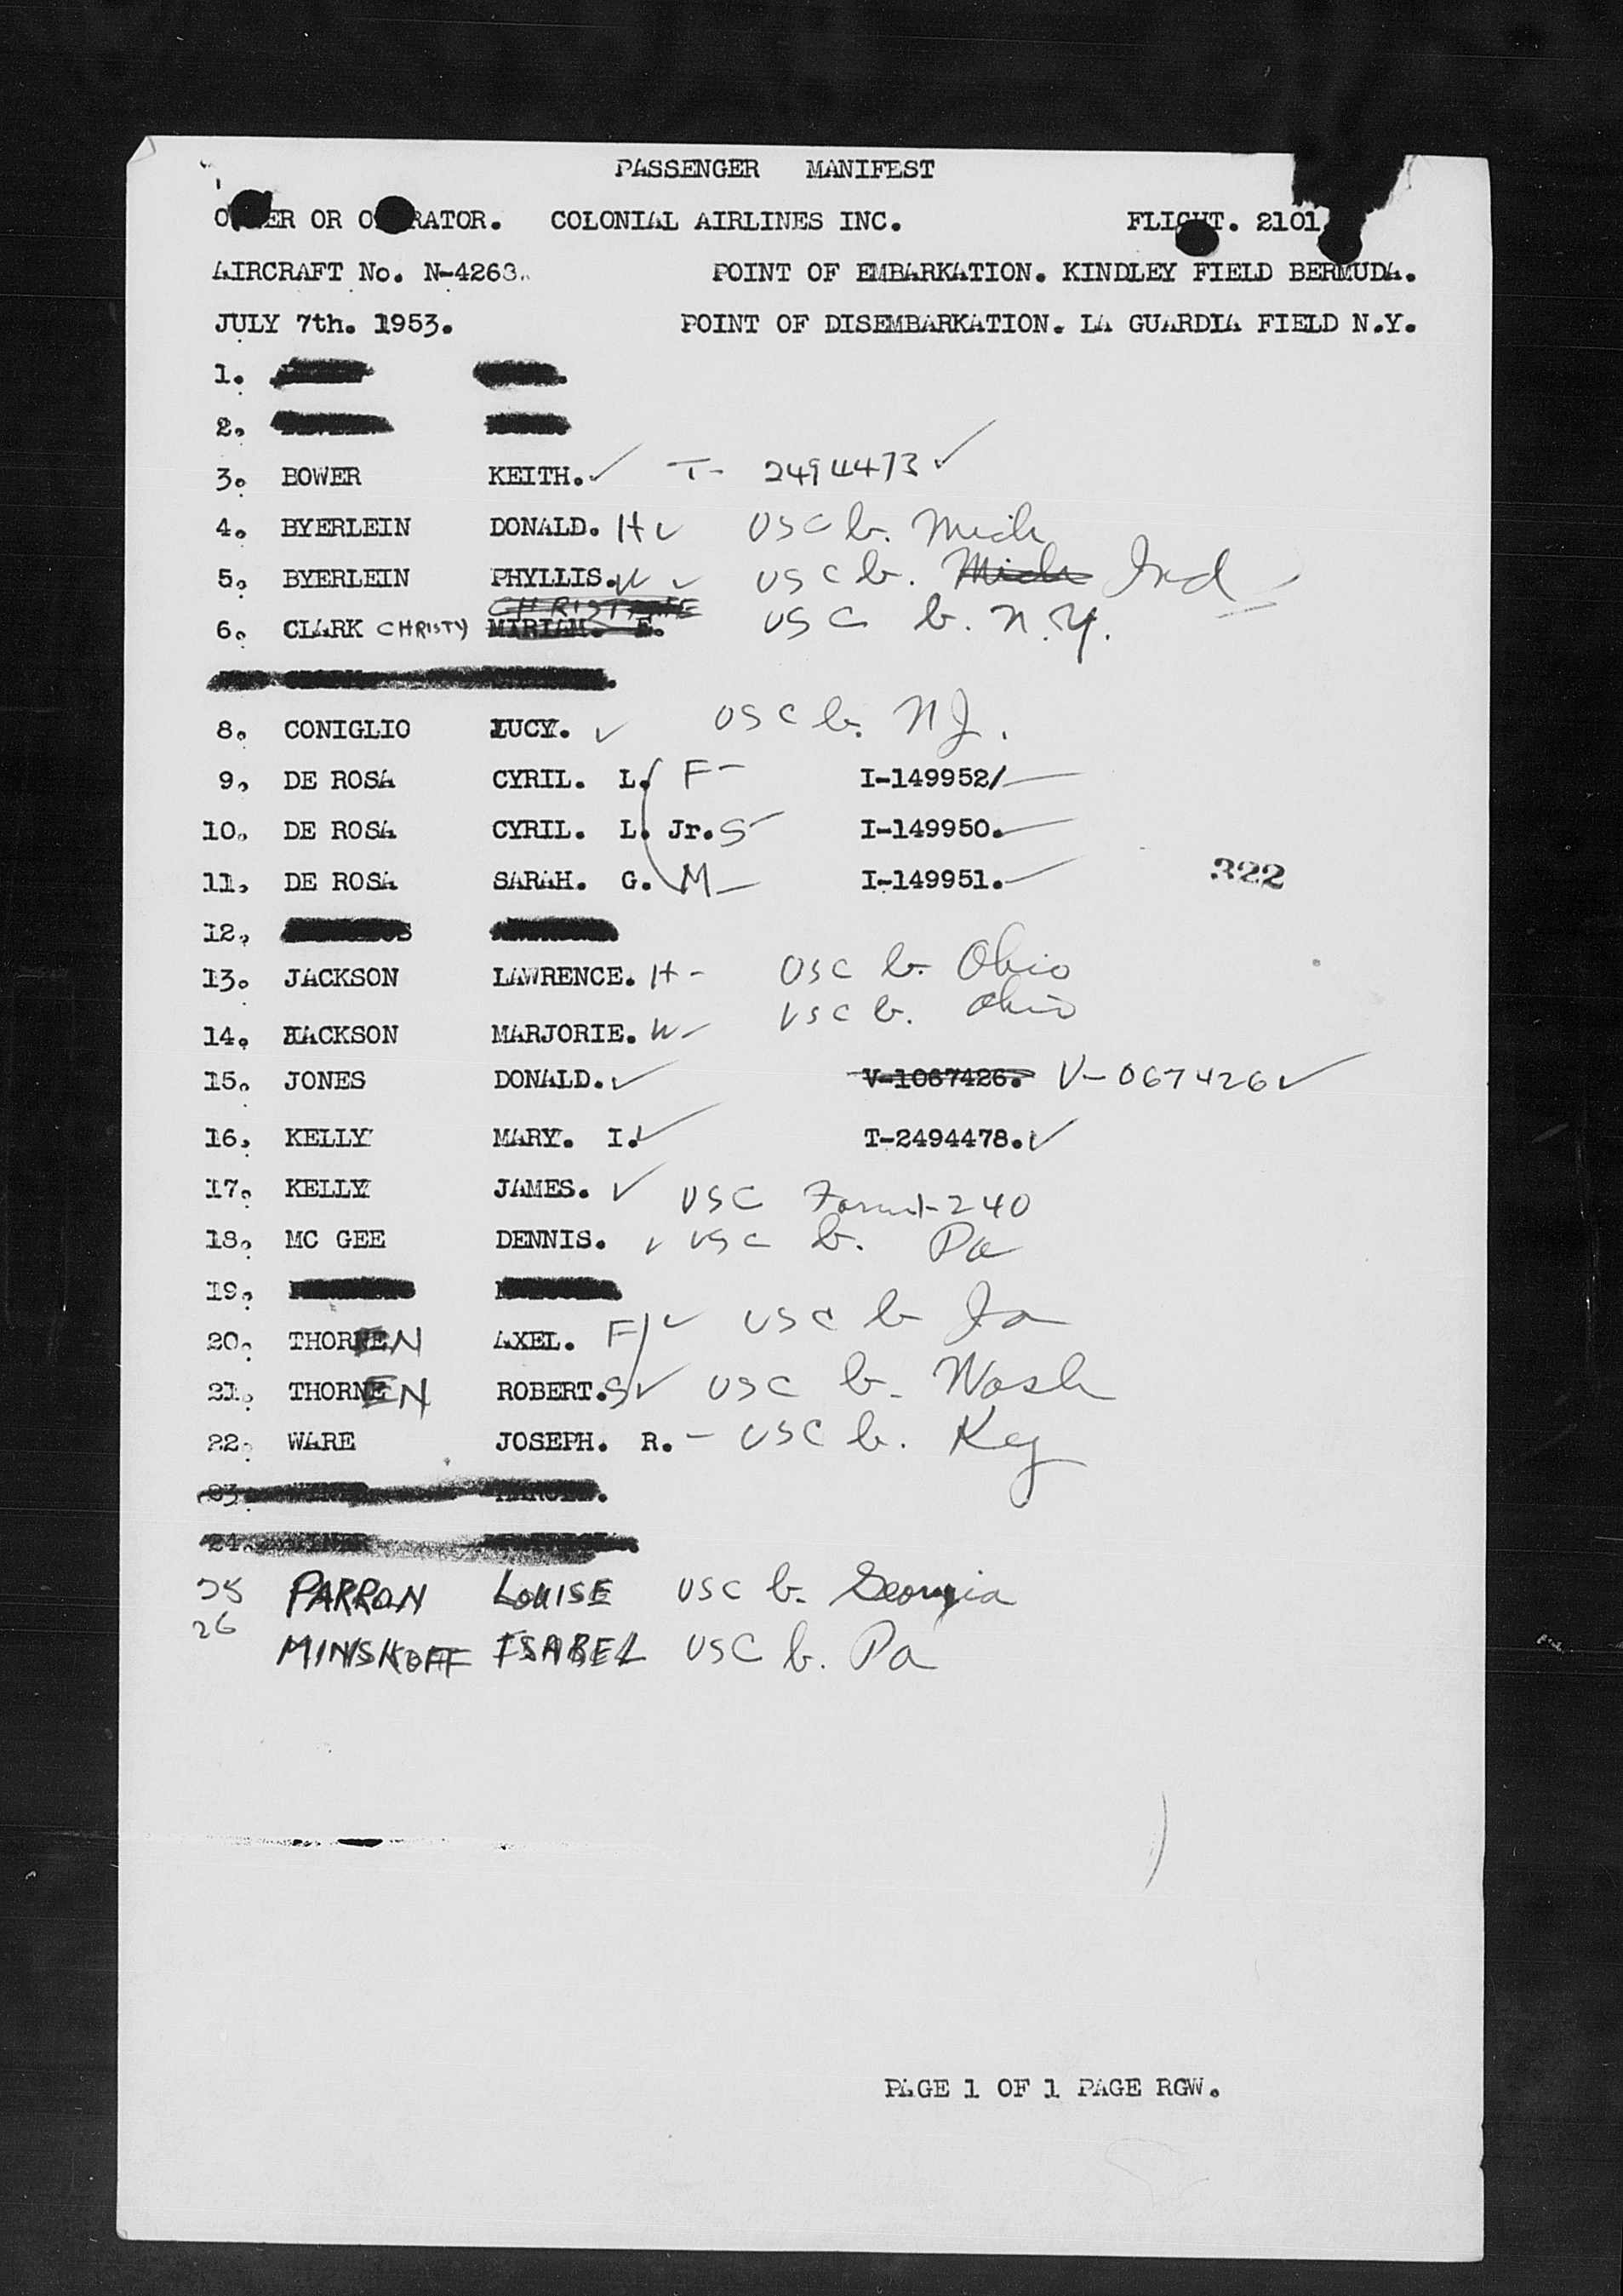 PASSENGER MANIFEST
OR COLONIAL AIRLINES INC. 2101
AIRCRAFT No. N-4263. POINT OF EMBARKATION. KINDLEY FIELD BERMUDA.
JULY 7th. 1953. POINT OF DISEMBARKATION. LA GUARDIA FIELD N.Y.
1.
2.
3. BOWER KEITH. ✓ T- 2494473 ✓
4. BYERLEIN DONALD. H ✓ USC b. Mich
5. BYERLEIN PHYLLIS. W ✓ USC b. Mich Ind
6. CLARK CHRISTY MIRIAM. E. USC b. N.Y.
8. CONIGLIO LUCY. ✓ USC b. NJ.
9. DE ROSA CYRIL. L. F - I-149952/
10. DE ROSA CYRIL. L. Jr. S I-149950.
11. DE ROSA SARAH. G. M I-149951. 322
12.
13. JACKSON LAWRENCE. H - USC b. Ohio
14. JACKSON MARJORIE. W - USC b. Ohio
15. JONES DONALD. ✓ V-1067426. V-067426 ✓
16. KELLY MARY. I. ✓ T-2494478. ✓
17. KELLY JAMES. ✓ USC Form-240
18. MC GEE DENNIS. ✓ USC b. Pa
19.
20. THOREN AXEL. F ✓ USC b Ia
21. THOREN ROBERT. S ✓ USC b. Wash
22. WARE JOSEPH. R. - USC b. Ky
23.
24.
25 PARRON LOUISE USC b. Georgia
26 MINSKOFF ISABEL USC b. Pa
PAGE 1 OF 1 PAGE RGW.